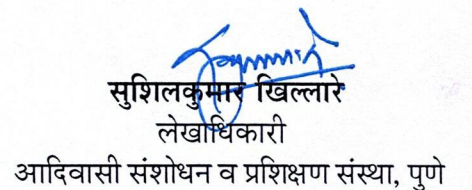 सुशिलकुमार खिल्लारे
लेखाधिकारी
आदिवासी संशोधन व प्रशिक्षण संस्था, पुणे